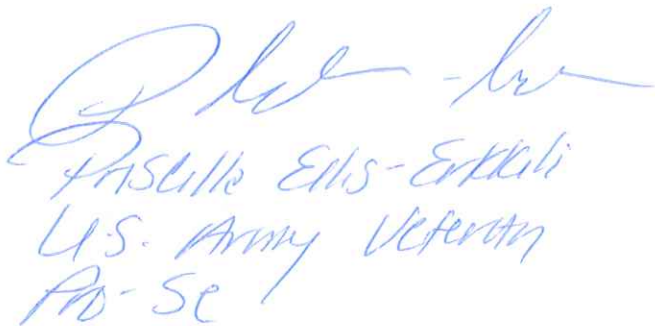 Priscilla Ellis-Erkkila
U.S. Army Veteran
Pro-Se